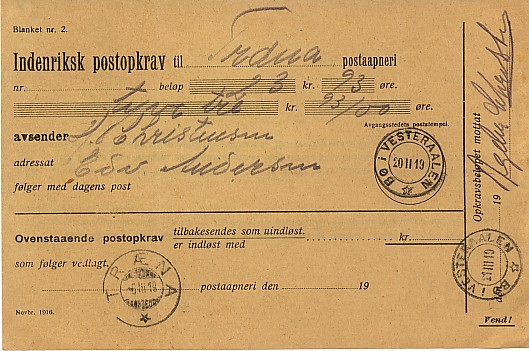 Blanket nr. 2.
Indenriksk postopkrav til postaapneri
nr. beløp 23 kr. 93 øre.
tyve tre kr. 93/100 øre.
Avgangsstedets poststempel.
avsender Christensen
adressat Edv. Andersen
følger med dagens post
BØ i VESTERAALEN
20 II 19
Ovenstaaende postopkrav tilbakesendes som uindløst.
er indløst med kr.
som følger vedlagt.
TRÆNA
-6 III 19
postaapneri den 19
Novbr. 1916.
Opkravsbeløpet mottat
19
BØ i VESTERAALEN
21 III 19
Vend!